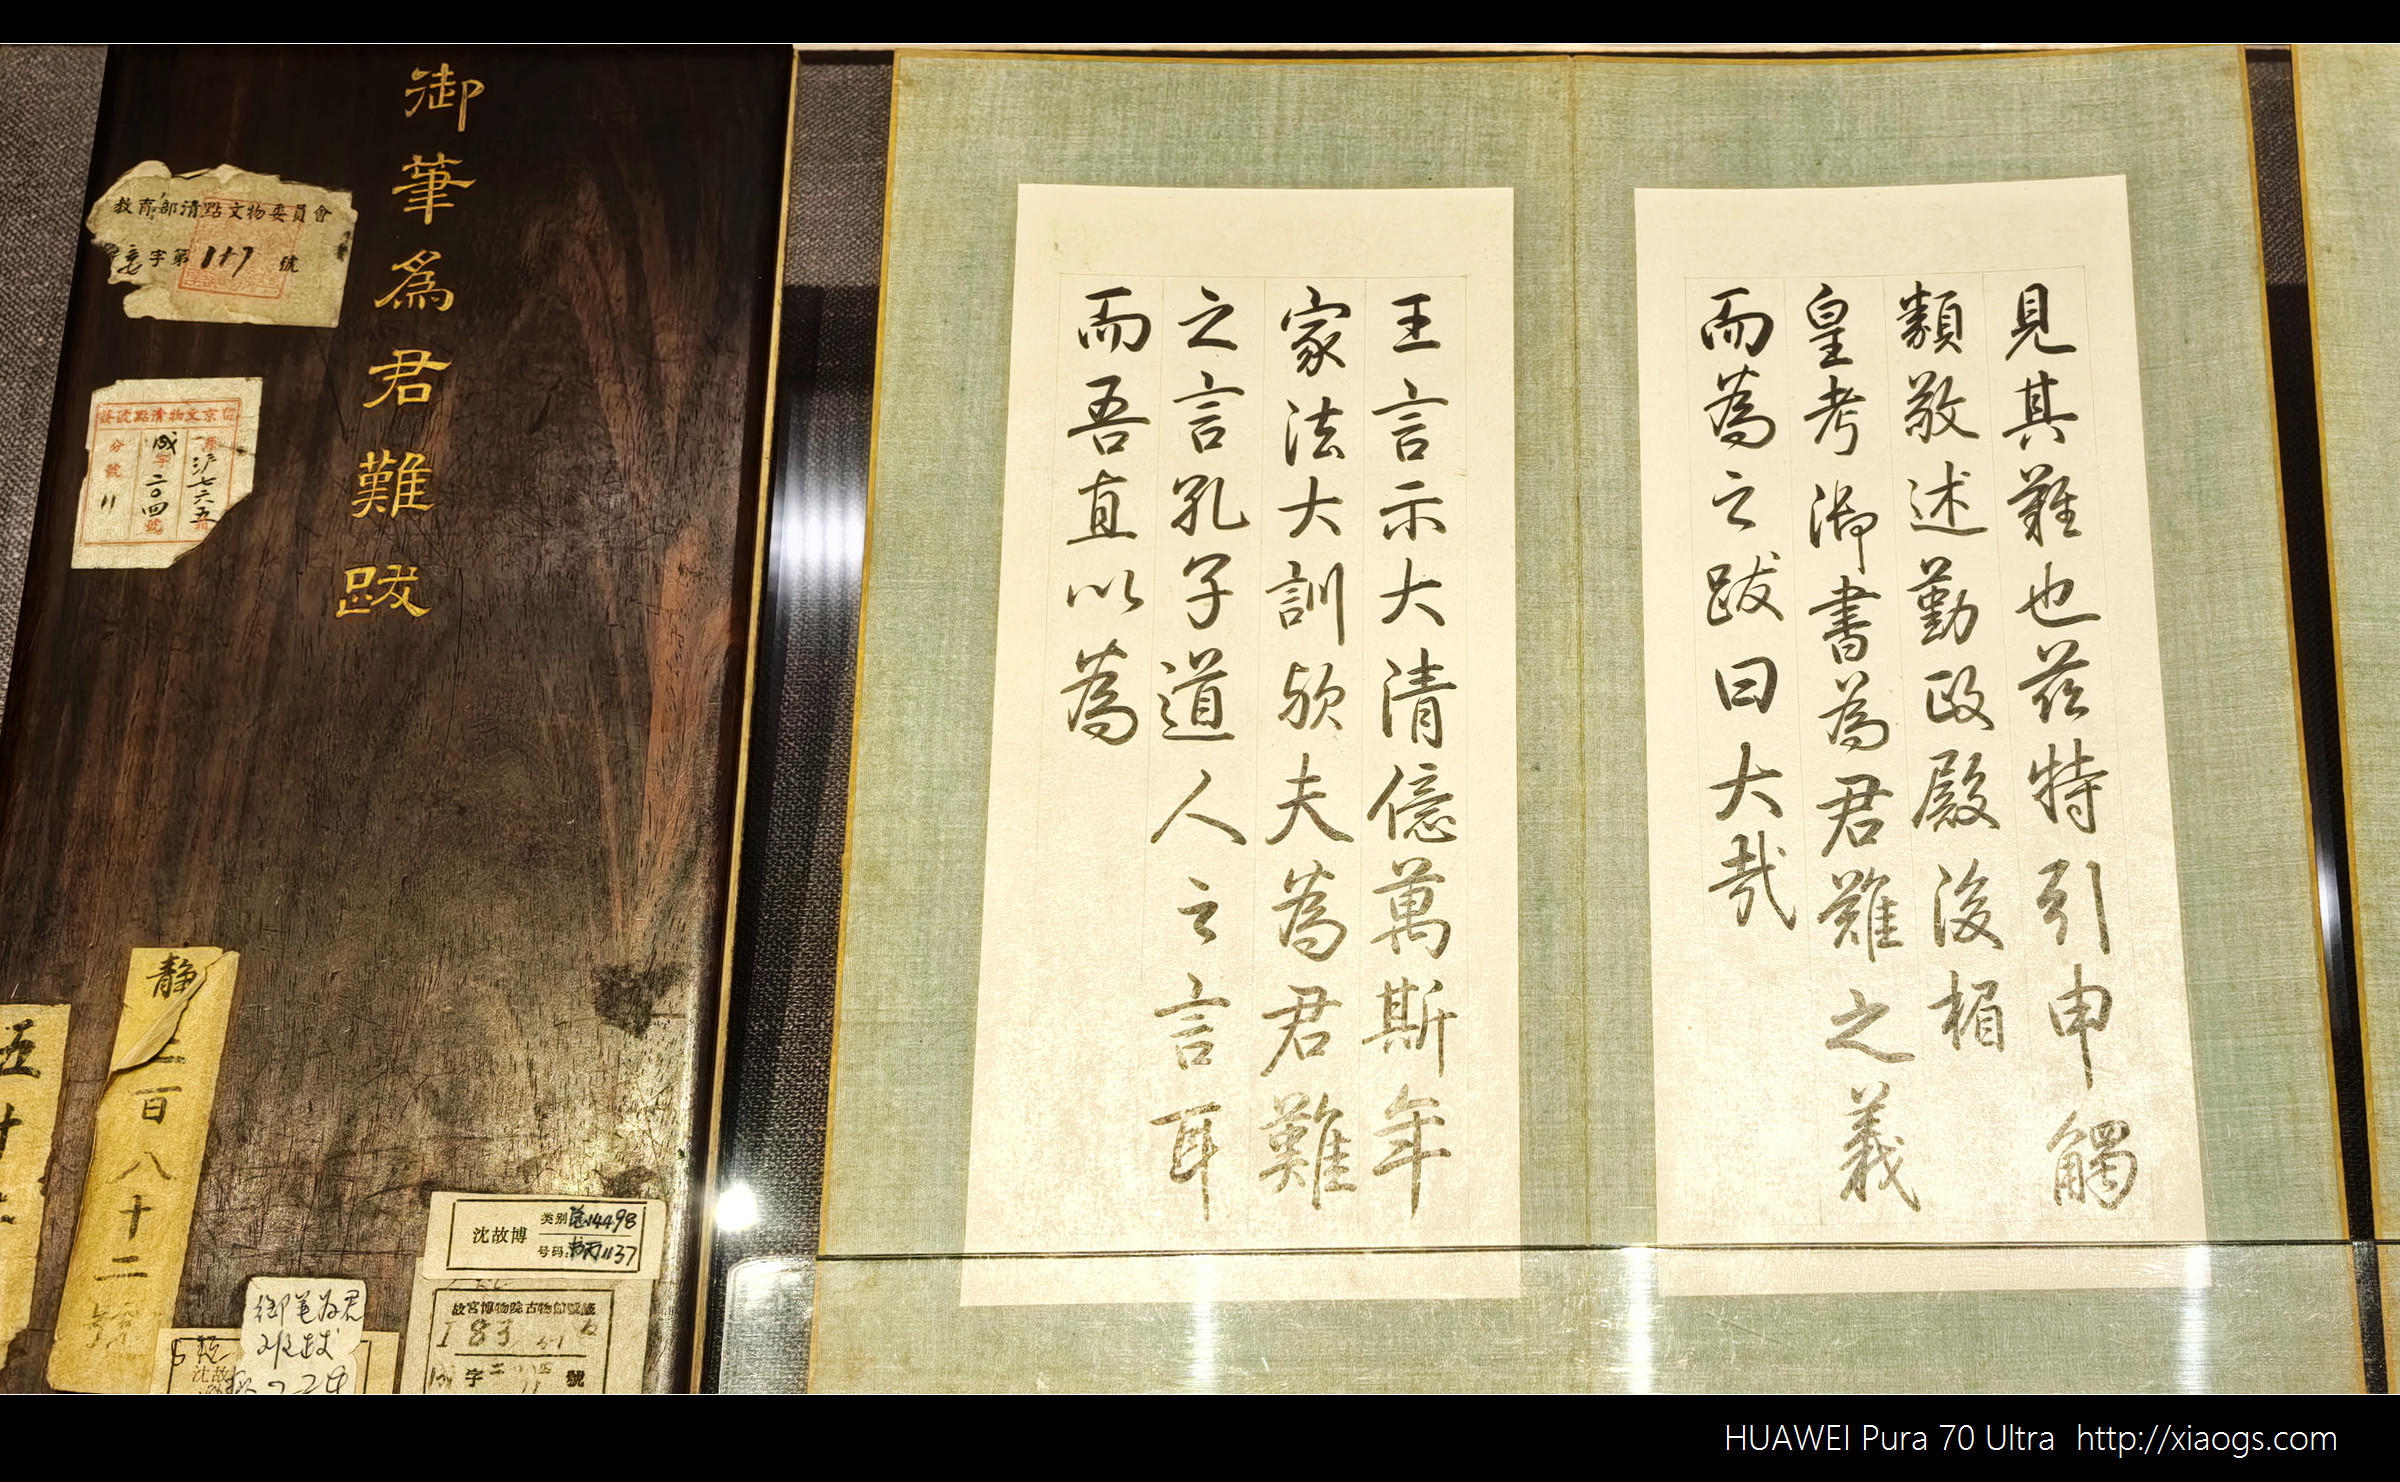 見其難也茲特引申觸
類敬述勤政殿後楣
皇考御書為君難之義
而為之跋曰大哉
王言示大清億萬斯年
家法大訓欤夫為君難
之言孔子道人之言耳
而吾直以為
御筆為君難跋
教育部清點文物委員會
字第117號
咸字二〇四號
滬七六五
分號11
靜
百八十二
五
沈故博
类别 总14498
号码: 书丙1137
故宮博物院古物館
字 號
御笔为君
难跋
HUAWEI Pura 70 Ultra http://xiaogs.com